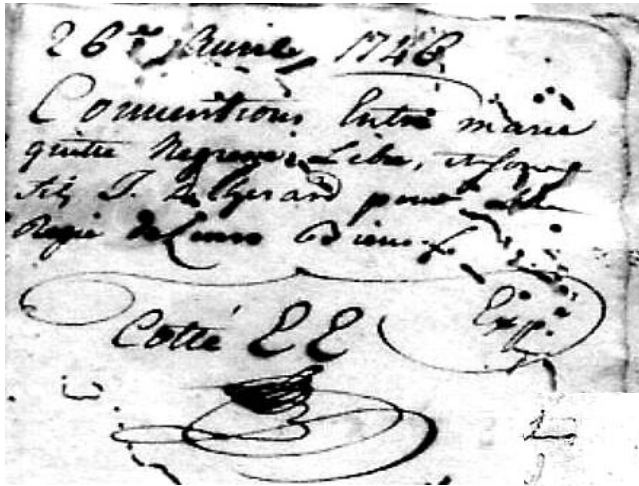 26e Avril 1746
Conventions Entre marie
quitte Negresse Libre, et
fils J. pour
Regie de Leurs Biens
Cotté EE
Exp.